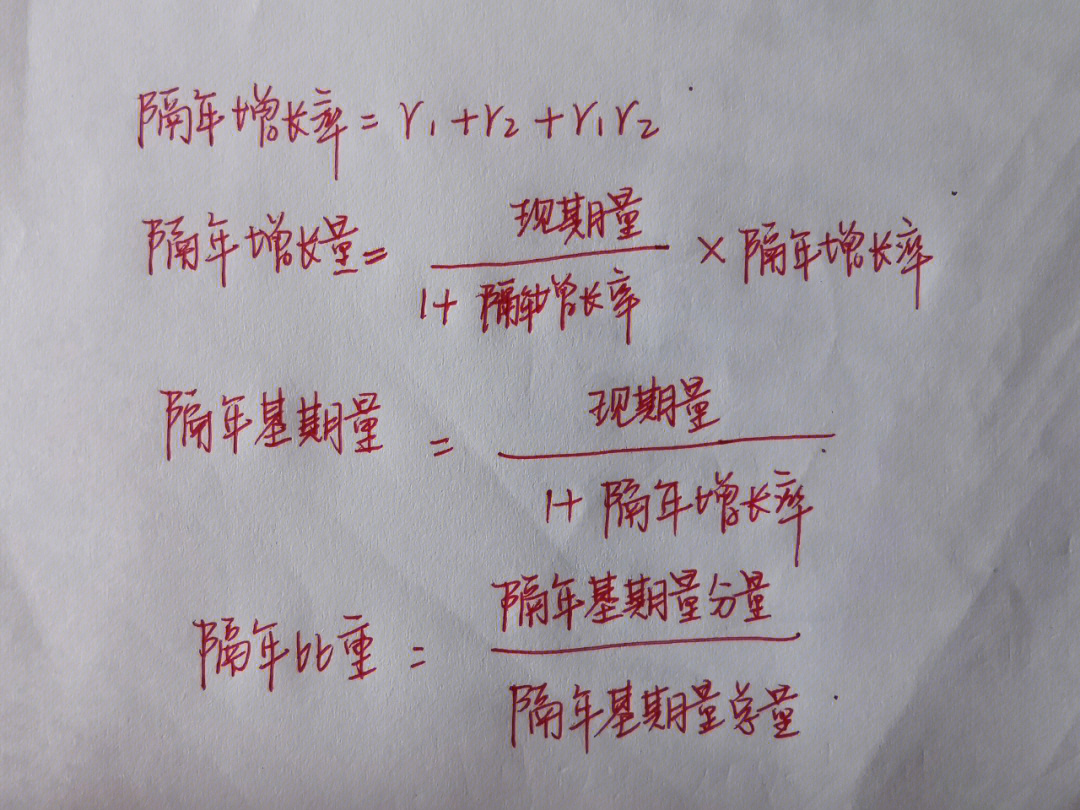 隔年增长率 = r₁ + r₂ + r₁r₂
隔年增长量 = 现期量 / 1 + 隔年增长率 × 隔年增长率
隔年基期量 = 现期量 / 1 + 隔年增长率
隔年比重 = 隔年基期量分量 / 隔年基期量总量